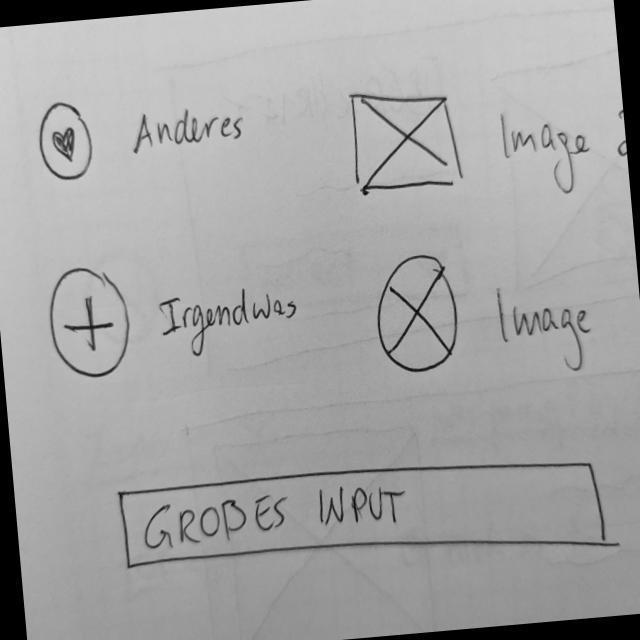 Anderes Image
Irgendwas Image
GROßES INPUT